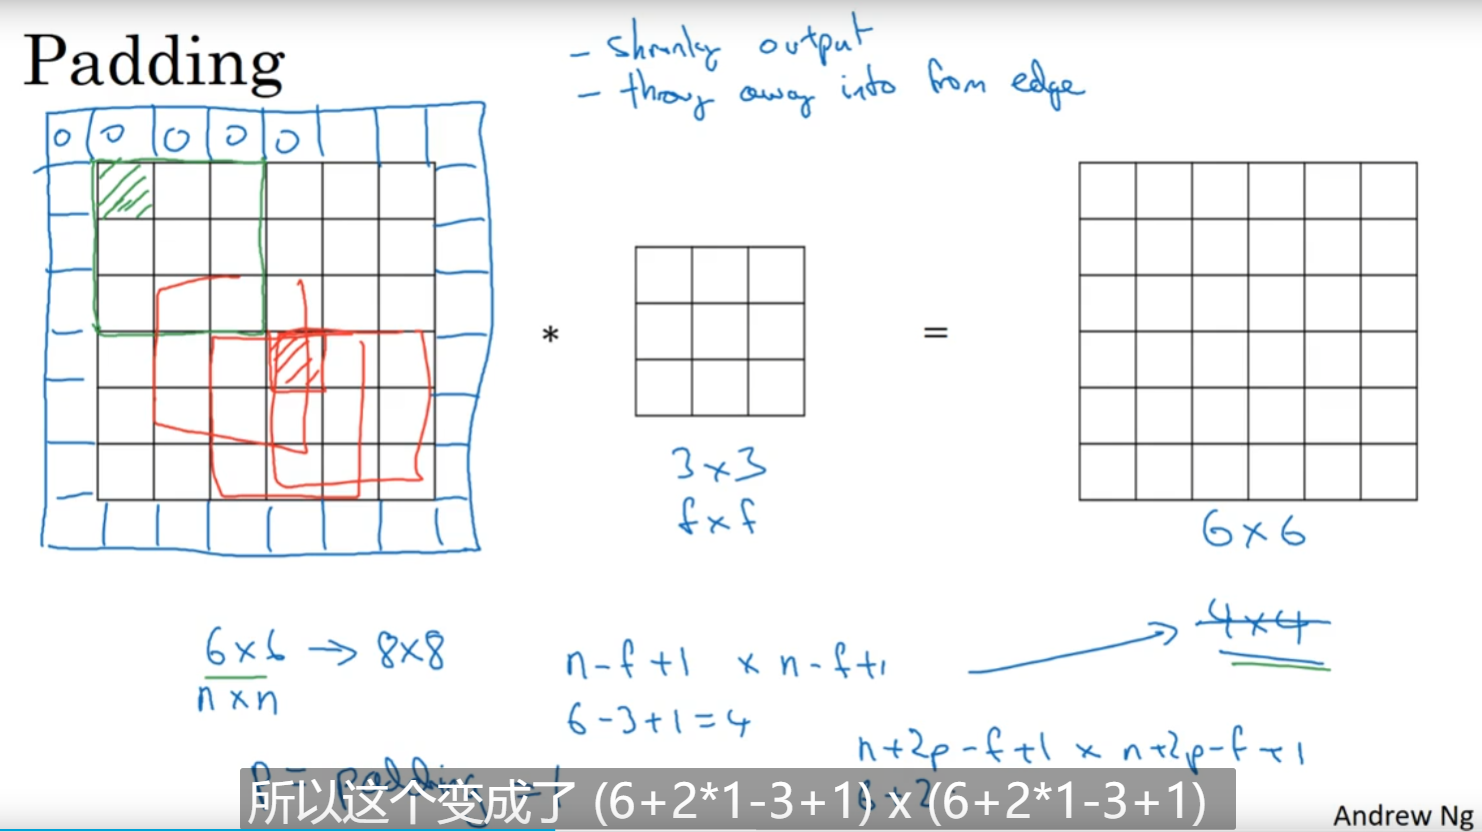 Padding
- shrinky output
- throw away info from edge
0 0 0 0 0
*
=
3 x 3
f x f
6 x 6
6 x 6 → 8 x 8
n x n
n - f + 1 x n - f + 1
6 - 3 + 1 = 4
4 x 4
n + 2p - f + 1 x n + 2p - f + 1
p = padding = 1
所以这个变成了 (6+2*1-3+1) x (6+2*1-3+1)
Andrew Ng